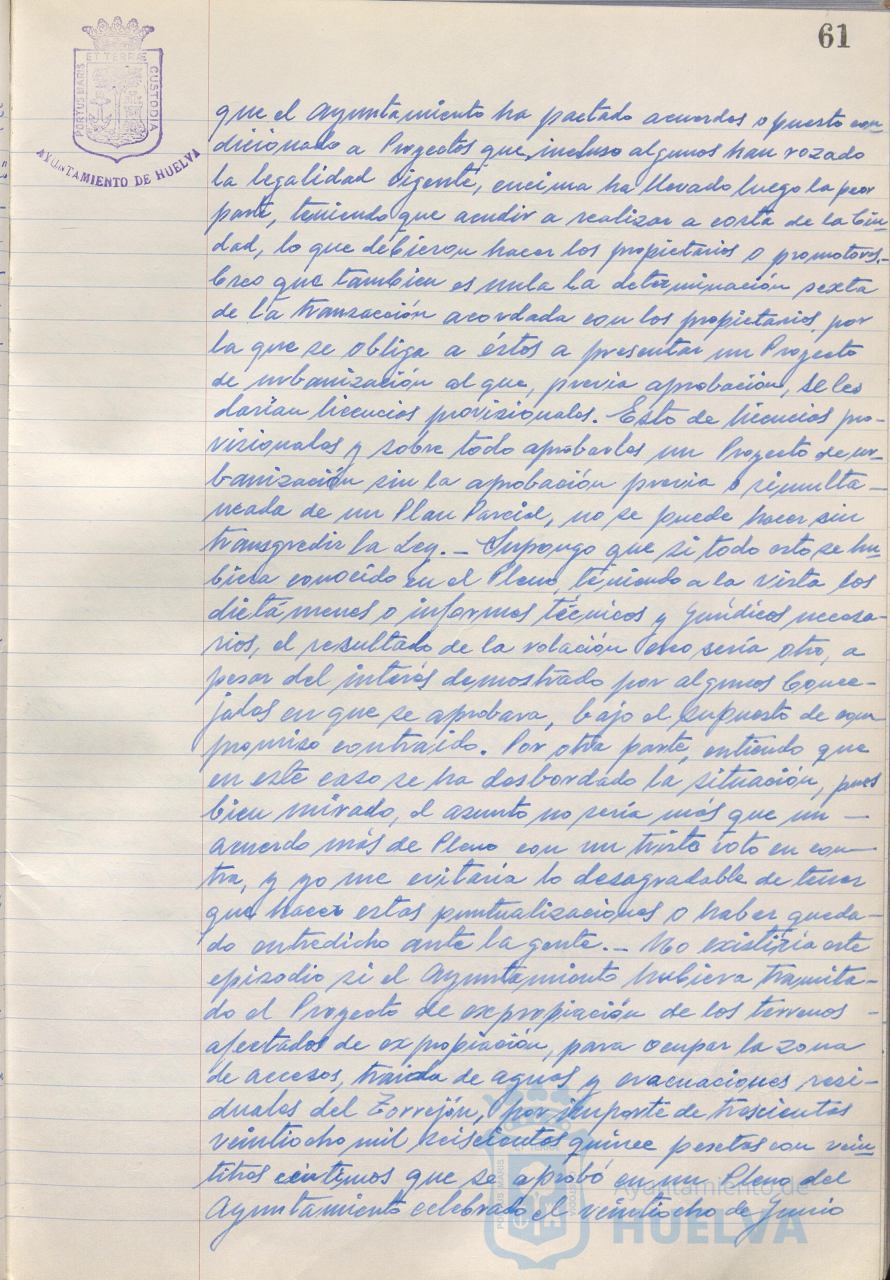 61
PORTUS MARIS ET TERRÆ CUSTODIA
AYUNTAMIENTO DE HUELVA
que el Ayuntamiento ha pactado acuerdos o puesto con
dicionado a Proyectos que, incluso algunos han rozado
la legalidad vigente, encima ha llevado luego la peor
parte, teniendo que acudir a realizar a costa de la Ciu-
dad, lo que debieron hacer los propietarios o promotores.-
Creo que tambien es nula la determinación sexta
de la transacción acordada con los propietarios, por
la que se obliga a éstos a presentar un Proyecto
de urbanización al que, previa aprobación, se les
darían licencias provisionales. Esto de licencias pro-
visionales y sobre todo aprobarles un Proyecto de ur-
banización sin la aprobación previa o simulta-
neada de un Plan Parcial, no se puede hacer sin
transgredir la Ley. - Supongo que si todo esto se hu-
biera conocido en el Pleno, teniendo a la vista los
dictámenes o informes técnicos y jurídicos necesa-
rios, el resultado de la votación creo sería otro, a
pesar del interés demostrado por algunos Conce-
jales en que se aprobara, bajo el supuesto de com
promiso contraido. Por otra parte, entiendo que
en este caso se ha desbordado la situación, pues
bien mirado, el asunto no sería más que un -
acuerdo más de Pleno con un triste voto en con-
tra, y yo me evitaría lo desagradable de tener
que hacer estas puntualizaciones o haber queda-
do entredicho ante la gente. - No existiría este
episodio si el Ayuntamiento hubiera tramita-
do el Proyecto de expropiación de los terrenos -
afectados de expropiación, para ocupar la zona
de accesos, traida de aguas y evacuaciones resi-
duales del Torrejón, por importe de trescientas
veintiocho mil seiscientas quince pesetas con vein-
titres centimos que se aprobó en un Pleno del
Ayuntamiento celebrado el veintiocho de Junio
Ayuntamiento de
HUELVA